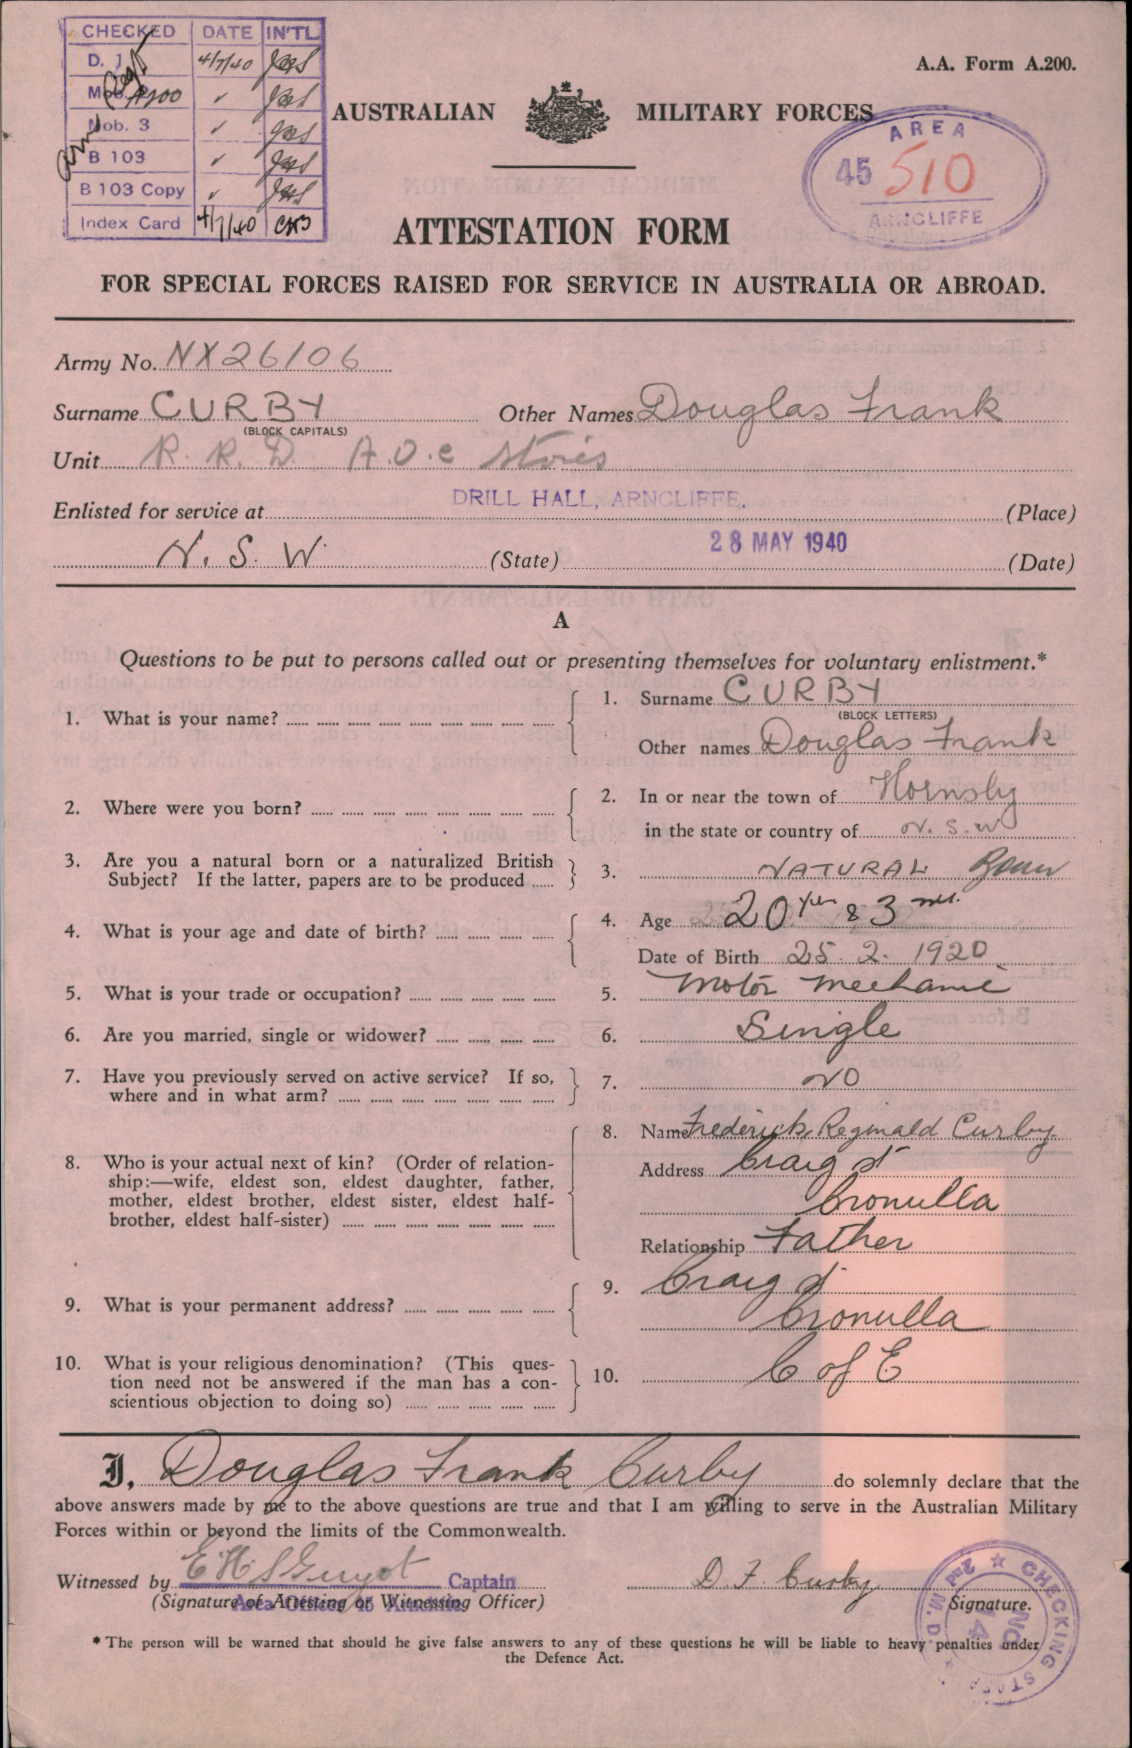 CHECKED DATE IN'TL
D. 1 4/7/40
Mob. A200 ✓
Mob. 3 ✓
B 103 ✓
B 103 Copy ✓
Index Card 4/7/40
A.A. Form A.200.
AUSTRALIAN MILITARY FORCES
AREA
45 510
ARNCLIFFE
ATTESTATION FORM
FOR SPECIAL FORCES RAISED FOR SERVICE IN AUSTRALIA OR ABROAD.
Army No. NX26106
Surname CURBY Other Names Douglas Frank
(BLOCK CAPITALS)
Unit R. R. D. A.O.C Stores
Enlisted for service at DRILL HALL, ARNCLIFFE. (Place)
N. S. W. (State) 28 MAY 1940 (Date)
A
Questions to be put to persons called out or presenting themselves for voluntary enlistment.*
1. What is your name? 1. Surname CURBY
(BLOCK LETTERS)
Other names Douglas Frank
2. Where were you born? 2. In or near the town of Hornsby
in the state or country of N. S. W
3. Are you a natural born or a naturalized British
Subject? If the latter, papers are to be produced 3. NATURAL Born
4. What is your age and date of birth? 4. Age 20 yrs & 3 mts.
Date of Birth 25. 2. 1920
5. What is your trade or occupation? 5. Motor Mechanic
6. Are you married, single or widower? 6. Single
7. Have you previously served on active service? If so,
where and in what arm? 7. NO
8. Who is your actual next of kin? (Order of relation-
ship:—wife, eldest son, eldest daughter, father,
mother, eldest brother, eldest sister, eldest half-
brother, eldest half-sister)
8. Name Frederick Reginald Curby
Address Craig St
Cronulla
Relationship Father
9. What is your permanent address? 9. Craig St
Cronulla
10. What is your religious denomination? (This ques-
tion need not be answered if the man has a con-
scientious objection to doing so) 10. C of E
I, Douglas Frank Curby do solemnly declare that the
above answers made by me to the above questions are true and that I am willing to serve in the Australian Military
Forces within or beyond the limits of the Commonwealth.
Witnessed by Captain D. F. Curby
(Signature of Attesting or Witnessing Officer) Signature.
Area Officer 45 Arncliffe
CHECKING STAFF 2nd M.D.
NO 14
* The person will be warned that should he give false answers to any of these questions he will be liable to heavy penalties under
the Defence Act.